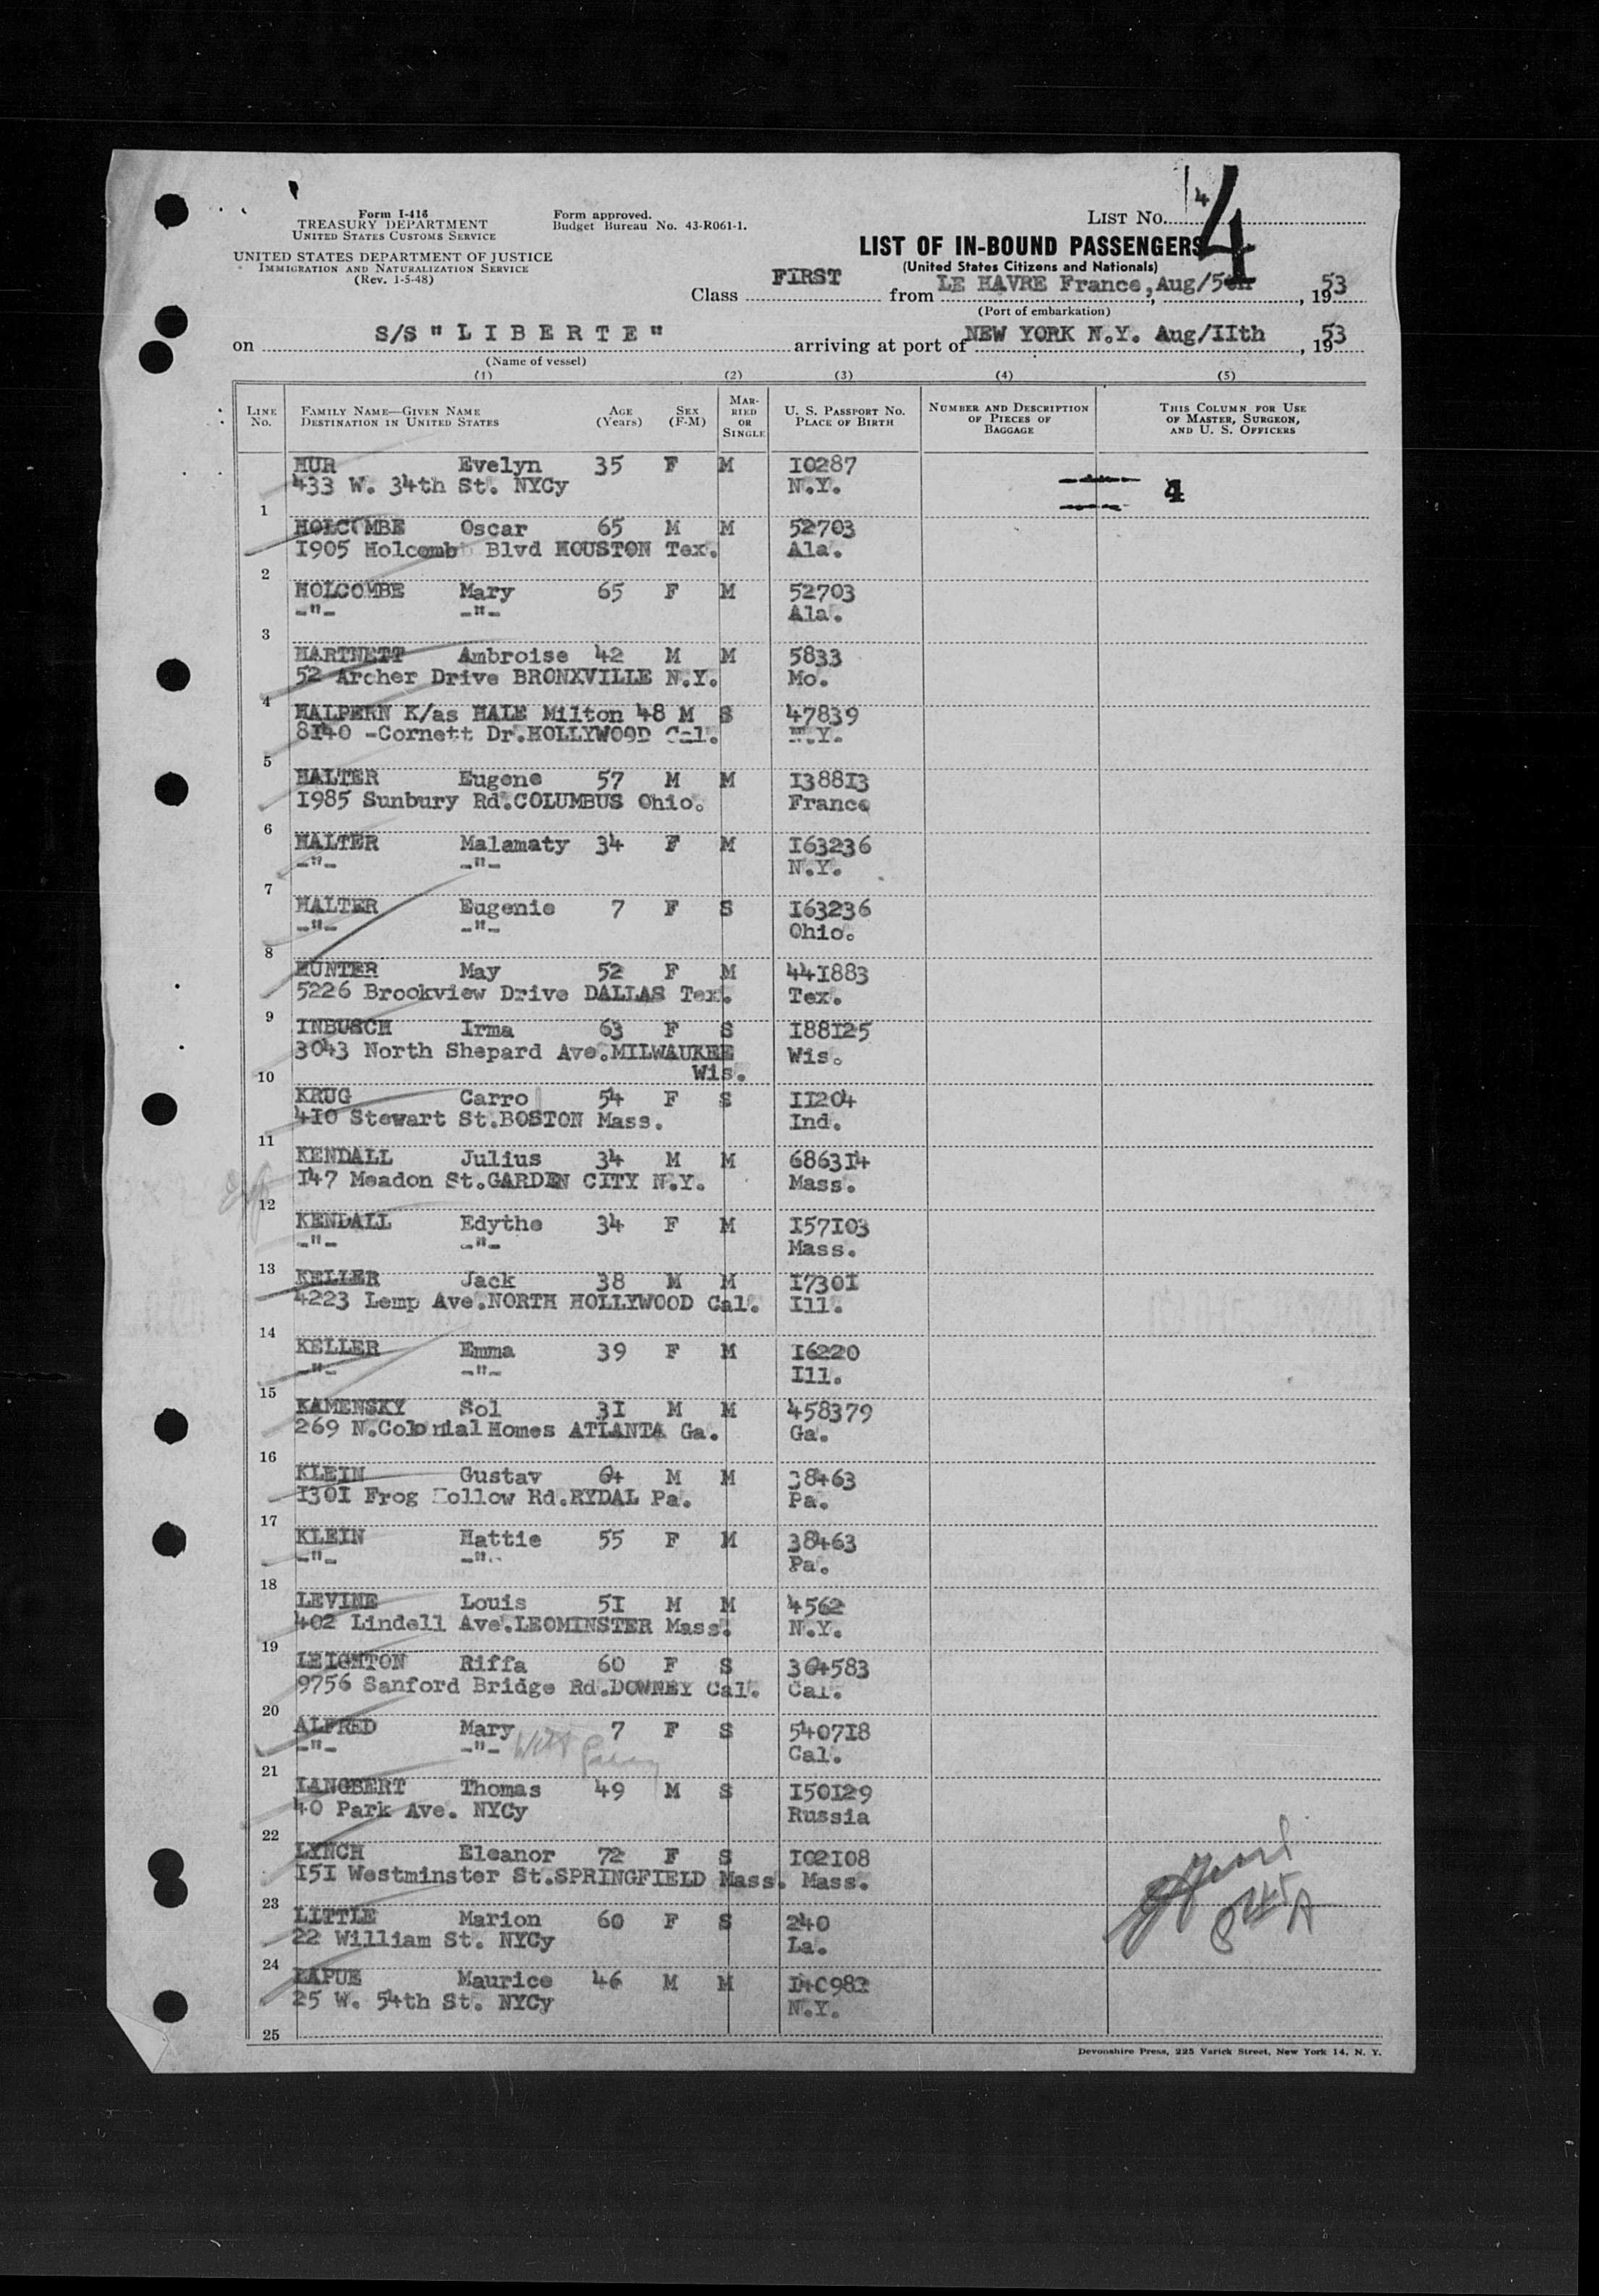 LIST NO. 4
4
Form I-416
TREASURY DEPARTMENT
UNITED STATES CUSTOMS SERVICE
UNITED STATES DEPARTMENT OF JUSTICE
IMMIGRATION AND NATURALIZATION SERVICE
(Rev. 1-5-48)
Form approved.
Budget Bureau No. 43-R061-1.
LIST OF IN-BOUND PASSENGERS
(United States Citizens and Nationals)
Class FIRST from LE HAVRE France, Aug/5th, 1953
(Port of embarkation)
on S/S "LIBERTE" arriving at port of NEW YORK N.Y. Aug/IIth, 1953
(Name of vessel)
(1) (2) (3) (4) (5)
LINE NO. FAMILY NAME—GIVEN NAME DESTINATION IN UNITED STATES AGE (Years) SEX (F-M) MARRIED OR SINGLE U. S. PASSPORT NO. PLACE OF BIRTH NUMBER AND DESCRIPTION OF PIECES OF BAGGAGE THIS COLUMN FOR USE OF MASTER, SURGEON, AND U. S. OFFICERS
HUR Evelyn 35 F M I0287
433 W. 34th St. NYCy N.Y. 4
1
HOLCOMBE Oscar 65 M M 52703
I905 Holcomb Blvd HOUSTON Tex. Ala.
2
HOLCOMBE Mary 65 F M 52703
-"- -"- Ala.
3
HARTNETT Ambroise 42 M M 5833
52 Archer Drive BRONXVILLE N.Y. Mo.
4
HALPERN K/as HALE Milton 48 M S 47839
8I40 -Cornett Dr.HOLLYWOOD Cal. N.Y.
5
HALTER Eugene 57 M M I388I3
I985 Sunbury Rd.COLUMBUS Ohio. France
6
HALTER Malamaty 34 F M I63236
-"- -"- N.Y.
7
HALTER Eugenie 7 F S I63236
-"- -"- Ohio.
8
HUNTER May 52 F M 44I883
5226 Brookview Drive DALLAS Tex. Tex.
9
INBUSCH Irma 63 F S I88I25
3043 North Shepard Ave.MILWAUKEE Wis.
Wis.
10
KRUG Carro 54 F S II204
4I0 Stewart St.BOSTON Mass. Ind.
11
KENDALL Julius 34 M M 6863I4
I47 Meadon St.GARDEN CITY N.Y. Mass.
12
KENDALL Edythe 34 F M I57I03
-"- -"- Mass.
13
KELLER Jack 38 M M I730I
4223 Lemp Ave.NORTH HOLLYWOOD Cal. Ill.
14
KELLER Emma 39 F M I6220
-"- -"- Ill.
15
KAMENSKY Sol 3I M M 458379
269 N.Colonial Homes ATLANTA Ga. Ga.
16
KLEIN Gustav 64 M M 38463
I30I Frog Hollow Rd.RYDAL Pa. Pa.
17
KLEIN Hattie 55 F M 38463
-"- -"- Pa.
18
LEVINE Louis 5I M M 4562
402 Lindell Ave.LEOMINSTER Mass. N.Y.
19
LEIGHTON Riffa 60 F S 304583
9756 Sanford Bridge Rd.DOWNEY Cal. Cal.
20
ALFRED Mary 7 F S 5407I8
-"- -"- Cal.
21
LANGBERT Thomas 49 M S I50I29
40 Park Ave. NYCy Russia
22
LYNCH Eleanor 72 F S I02I08
I5I Westminster St.SPRINGFIELD Mass. Mass.
23
LITTLE Marion 60 F S 240
22 William St. NYCy La.
24
LAPUE Maurice 46 M M I40982
25 W. 54th St. NYCy N.Y.
25
Devonshire Press, 225 Varick Street, New York 14, N. Y.